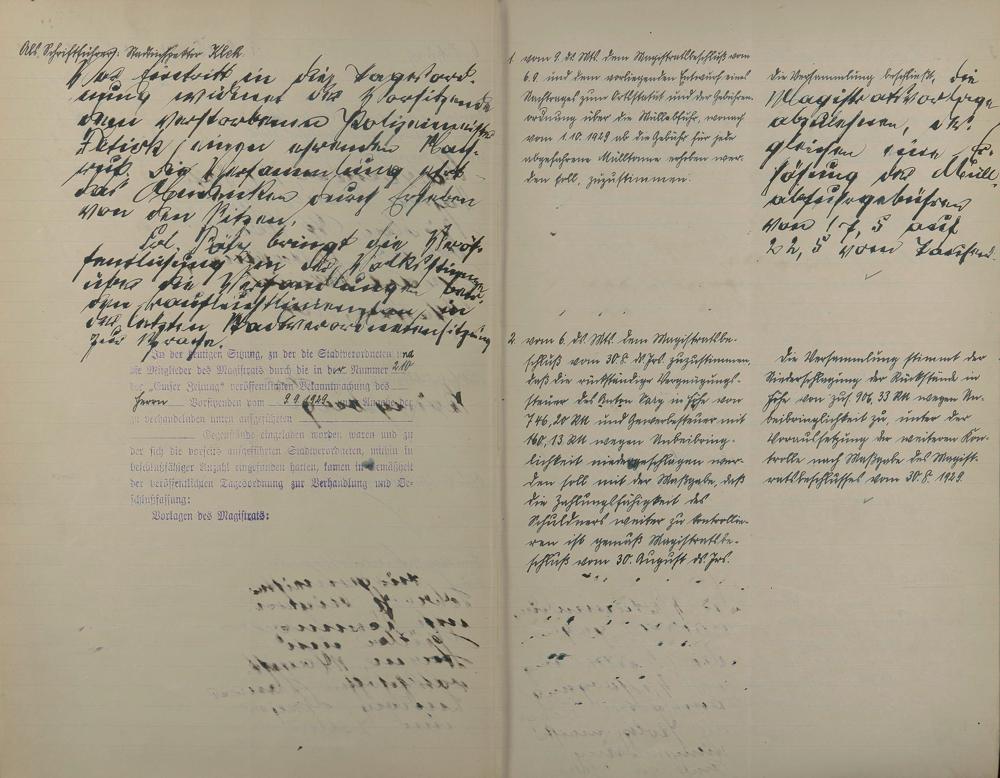 Als Schriftführer: Stadtinspektor Klek.
Vor Eintritt in die Tagesord-
nung widmet der Vorsitzende
dem verstorbenen Polizeimeister
einen ehrenden Nach-
ruf. Die Versammlung ehrt
das Andenken durch Erheben
von den Sitzen.
bringt die Veröf-
fentlichung in der Volksstimme
über die Verhandlungen betr.
den in
der letzten Stadtverordnetensitzung
zur Sprache.
In der heutigen Sitzung, zu der die Stadtverordneten und
die Mitglieder des Magistrats durch die in der Nummer 210
der „Gubener Zeitung“ veröffentlichten Bekanntmachung des
Herrn Vorstehers vom 9.9.1929 unter Angabe der
zu verhandelnden unten aufgeführten
Gegenstände eingeladen worden waren und zu
der sich die vorseits aufgeführten Stadtverordneten, mithin in
beschlußfähiger Anzahl eingefunden hatten, kamen in Gemäßheit
der veröffentlichten Tagesordnung zur Verhandlung und Be-
schlußfassung:
Vorlagen des Magistrats:
1. vom 9. ds. Mts. dem Magistratsbeschluß vom
6.9. und dem vorliegenden Entwurf eines
Nachtrages zum Ortsstatut und der Gebühren-
ordnung über die Müllabfuhr, wonach
vom 1.10.1929 ab die Gebühr für jede
abgefahrene Mülltonne erhoben wer-
den soll, zuzustimmen.
Die Versammlung beschließt, die
Magistratsvorlage
abzulehnen, des-
gleichen eine Er-
höhung der Müll-
abfuhrgebühren
von 17,5 auf
22,5 vom Tausend.
2. vom 6. ds. Mts. dem Magistratsbe-
schluß vom 30.8. ds. Jrs. zuzustimmen,
daß die rückständige Vergnügungs-
steuer des in Höhe von
746,20 RM und Gewerbesteuer mit
160,13 RM wegen Unbeibring-
lichkeit niedergeschlagen wer-
den soll mit der Maßgabe, daß
die Zahlungsfähigkeit des
Schuldners weiter zu kontrollie-
ren ist gemäß Magistratsbe-
schluß vom 30. August ds. Jrs.
Die Versammlung stimmt der
Niederschlagung der Rückstände in
Höhe von zus. 906,33 RM wegen Un-
beibringlichkeit zu, unter der
Voraussetzung der weiteren Kon-
trolle nach Maßgabe des Magist-
ratsbeschlusses vom 30.8.1929.